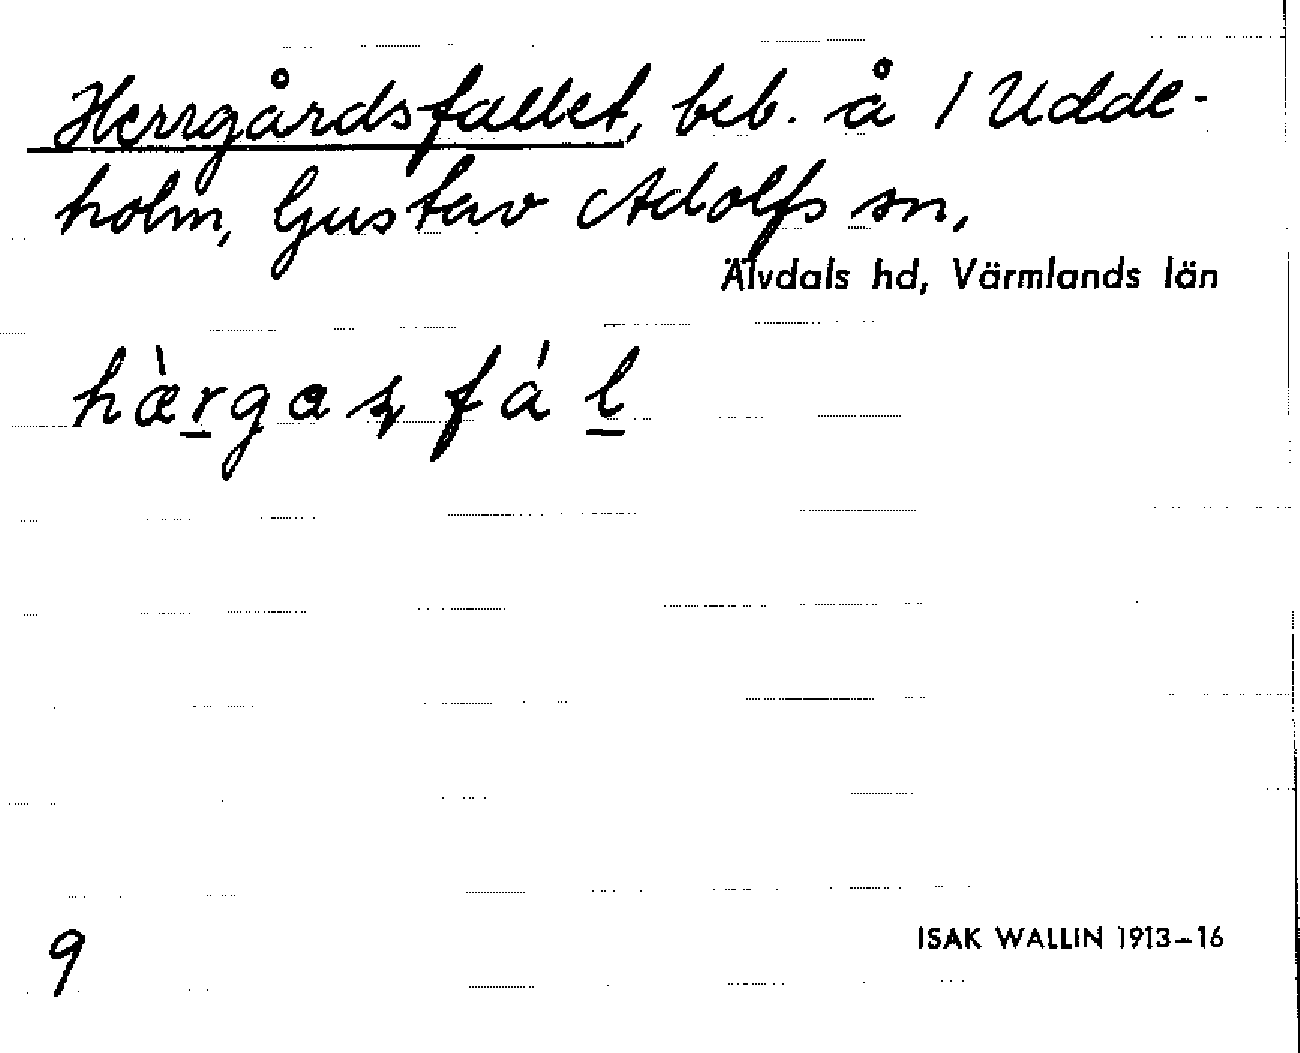 Herrgårdsfallet, beb. å 1 Udde-
holm, Gustav Adolfs sn,
Älvdals hd, Värmlands län
hæ̀rgaʂfál
9
ISAK WALLIN 1913–16